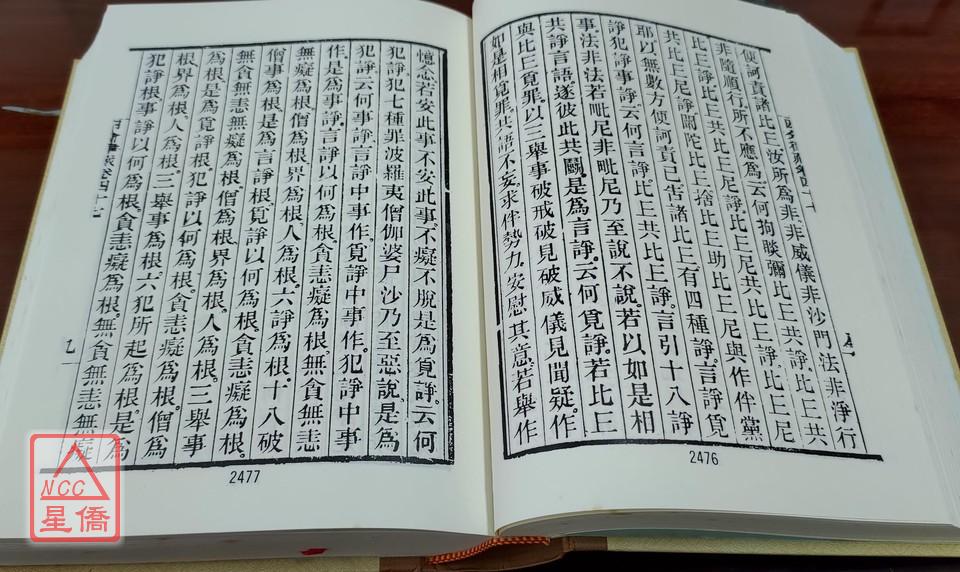 便訶責諸比丘汝所為非非威儀非沙門法非淨行
非隨順行所不應為云何拘睒彌比丘共諍比丘共
比丘諍比丘共比丘尼諍比丘尼共比丘諍比丘尼
共比丘尼諍闡陀比丘捨比丘助比丘尼與作伴黨
耶以無數方便訶責已告諸比丘有四種諍言諍覓
諍犯諍事諍云何言諍比丘共比丘諍。言引十八諍
事。法非法若毗尼非毗尼乃至說不說。若以如是相
共諍言語遂彼此共鬭。是為言諍。云何覓諍。若比丘
與比丘覓罪。以三舉事破戒破見破威儀見聞疑。作
如是相覓罪。共語不妄。求伴勢力。安慰其意。若舉作
2476
憶念若安此事不安此事。不癡不脫。是為覓諍。云何
犯諍。犯七種罪波羅夷僧伽婆尸沙乃至惡說。是為
犯諍。云何事諍。言諍中事作。覓諍中事作。犯諍中事
作。是為事諍。言諍以何為根。貪恚癡為根。無貪無恚
無癡為根。僧為根。界為根。人為根。六諍為根。十八破
僧事為根。是為言諍根。覓諍以何為根。貪恚癡為根。
無貪無恚無癡為根。僧為根。界為根。人為根。三舉事
為根。是為覓諍根。犯諍以何為根。貪恚癡為根。僧為
根。界為根。人為根。三舉事為根。六犯所起為根。是為
犯諍根。事諍以何為根。貪恚癡為根。無貪無恚無癡
2477
NCC
星僑